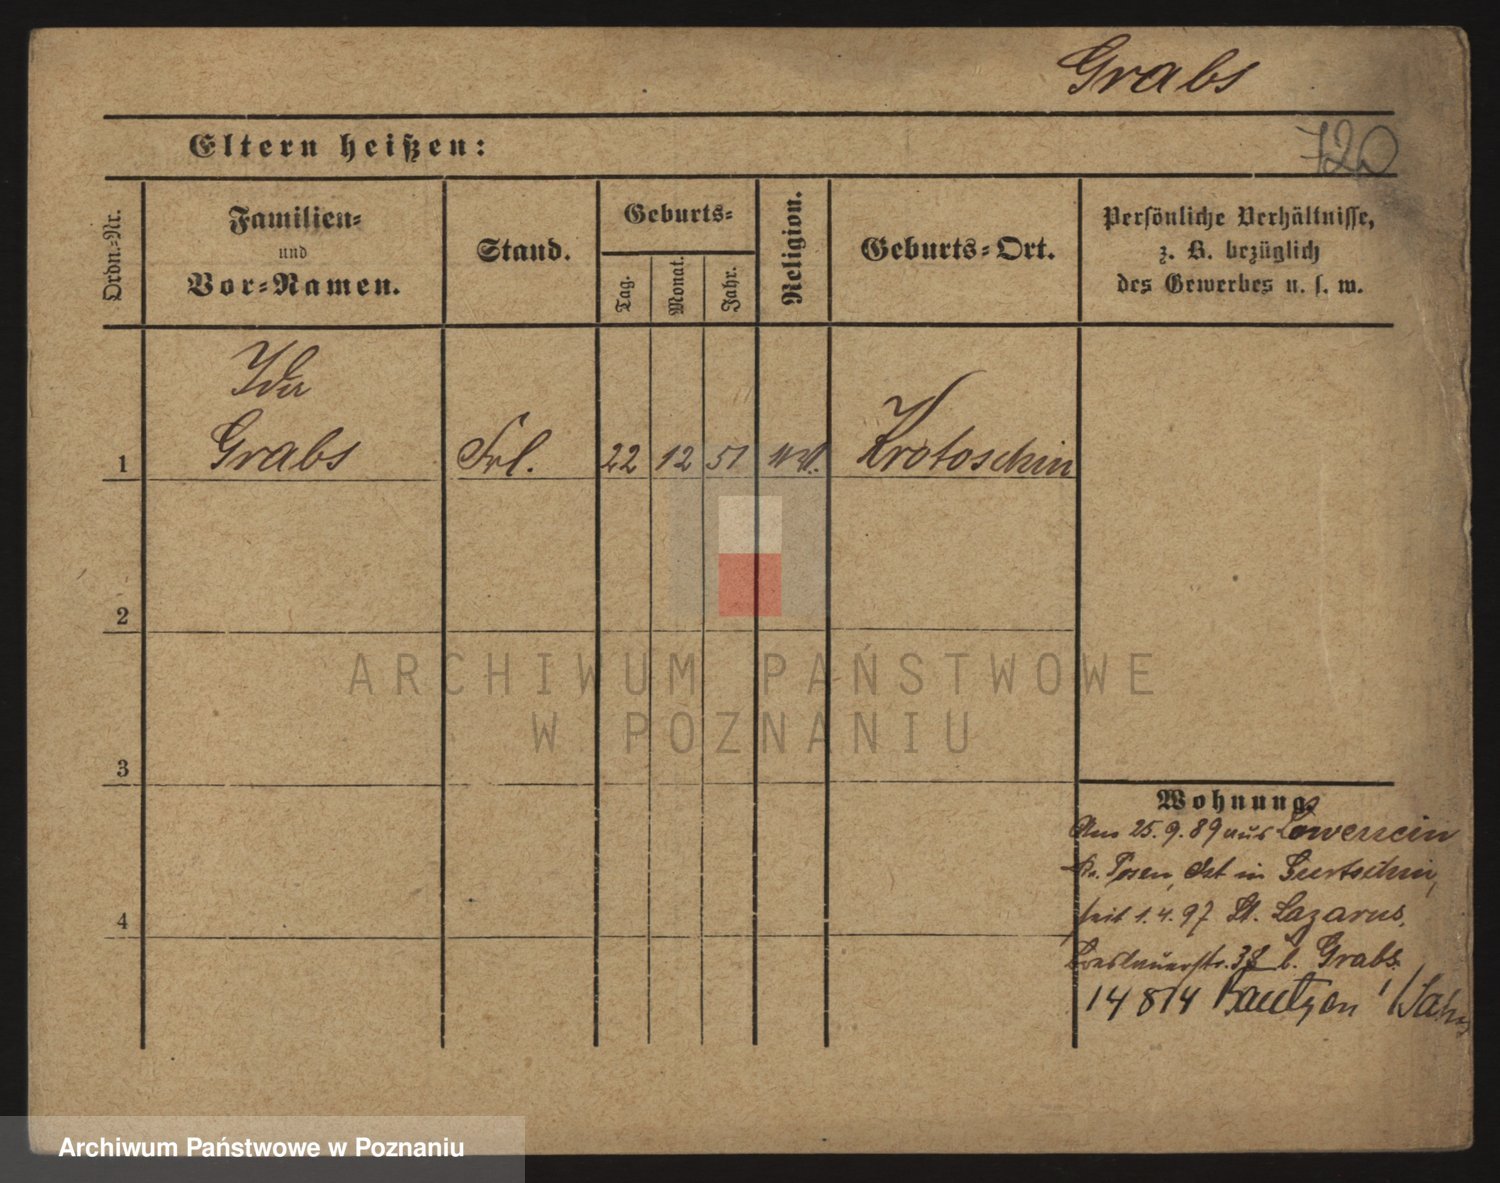 Grabs
720
Eltern heißen:
Ordn.=Nr.
Familien=
und
Vor=Namen.
Stand.
Geburts=
Tag.
Monat.
Jahr.
Religion.
Geburts=Ort.
Persönliche Verhältnisse,
z. B. bezüglich
des Gewerbes u. s. w.
Ida
1 Grabs Frl. 22 12 51 Krotoschin
2
3
4
Wohnung.
Am 25.9.89 aus
Kr. Posen, Ort in Gurtschin,
seit 1.4.97 St. Lazarus,
Breslauerstr. 38 b. Grabs.
14 8 14 Bautzen
ARCHIWUM PAŃSTWOWE
W POZNANIU
Archiwum Państwowe w Poznaniu